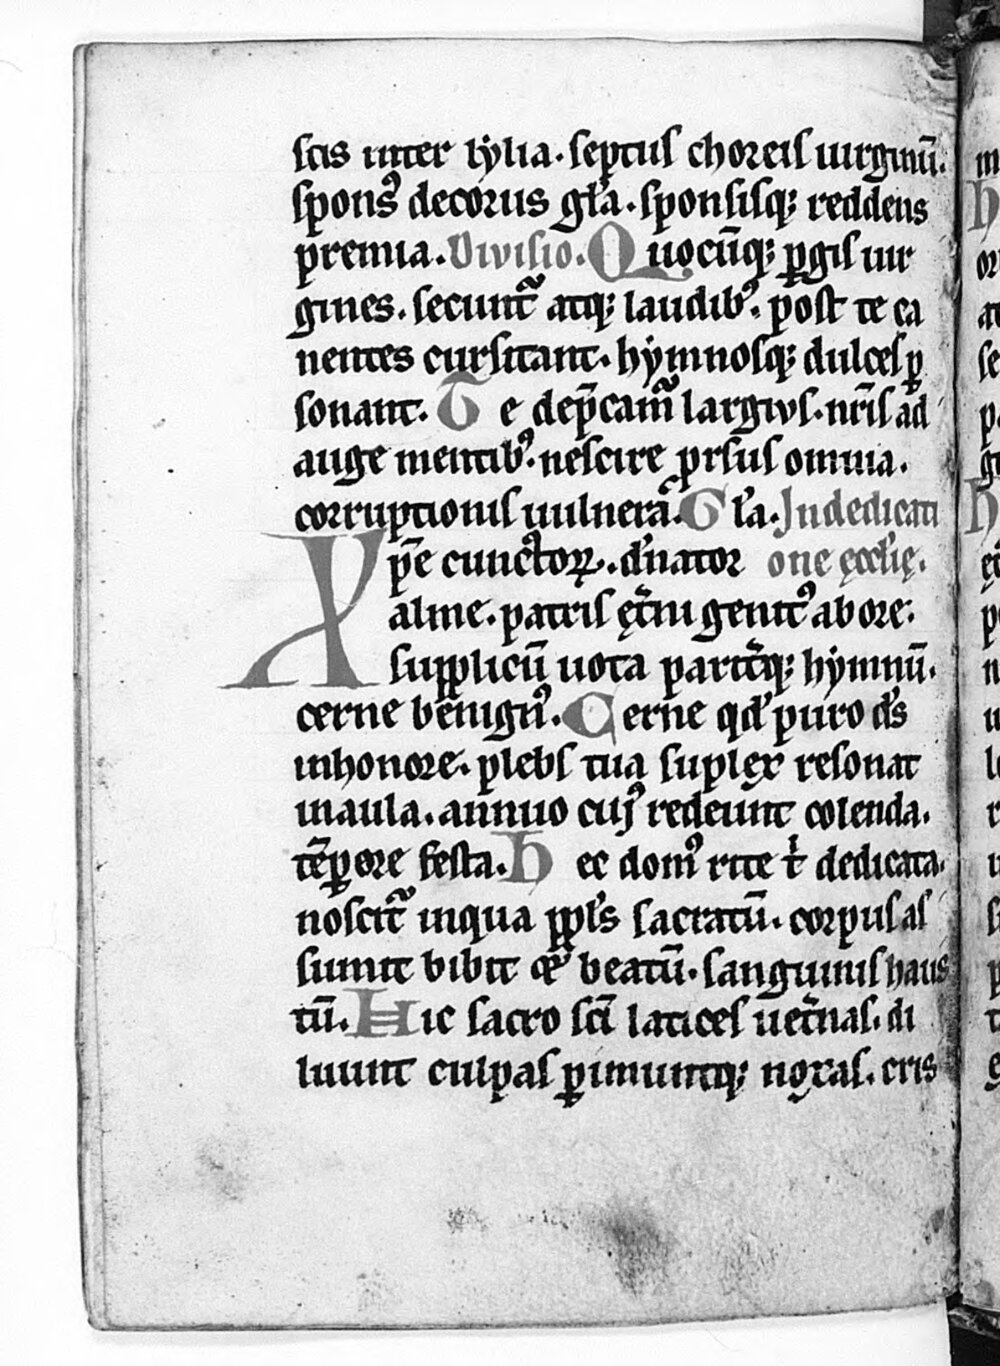 scis inter lẏlia. septus choreis uirginū.
spons᷒ decorus gła. sponsisq; reddens
premia. Divisio. Quocūq; ꝑgis uir
gines. secunt᷑ atq; laudib᷒. post te ca
nentes cursitant. hẏmnosq; dulces ꝑ
sonant. Te dep̄cam᷑ largivs. nr̄is ad
auge mentib᷒. nescire prsus omnia.
corruptionis uulnera. Gła. In dedicati
Xp̄e cunctoꝝ. dn̄ator one ęccłię.
alme. patris ęt̄ni genit᷒ ab ore.
supplicū uota pariťq; hẏmnū.
cerne benign᷒. Cerne qđ puro ds̄
in honore. plebs tua suplex resonat
in aula. annuo cui᷒ redeunt colenda.
tēꝑore festa. Hec dom᷒ rite t̄ dedicata.
noscit᷑ in qua ppłs sacratū. corpus as
sumit bibit & beatū. sanguinis haus
tū. Hic sacro scī latices uet̄nas. di
luunt culpas ꝑimuntq; noxas. cris